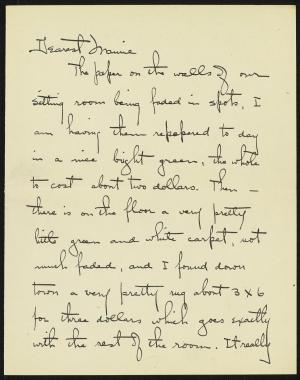 Dearest Mamie
The paper on the walls of our
sitting room being faded in spots, I
am having them repapered to day
in a nice bright green, the whole
to cost about two dollars. Then –
there is on the floor a very pretty
little green and white carpet, not
much faded, and I found down
town a very pretty rug about 3 x 6
for three dollars which goes exactly
with the rest of the room. It really